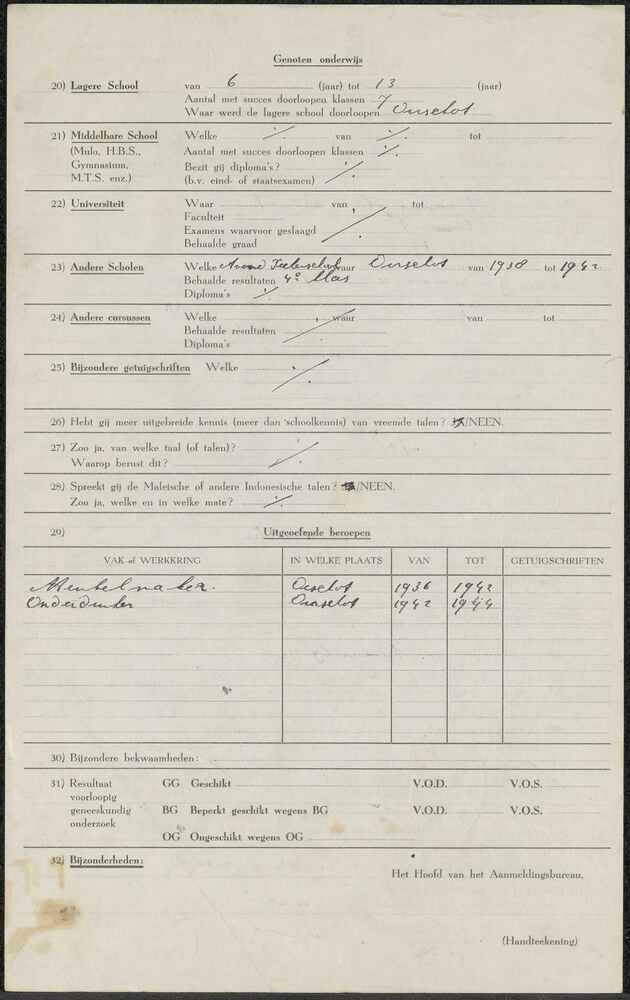 Genoten onderwijs
20) Lagere School van 6 (jaar) tot 13 (jaar)
Aantal met succes doorloopen klassen 7
Waar werd de lagere school doorloopen Oirschot
21) Middelbare School Welke ./. van ./. tot
(Mulo, H.B.S., Aantal met succes doorloopen klassen ./.
Gymnasium, Bezit gij diploma's?
M.T.S. enz.) (b.v. eind- of staatsexamen) ./.
22) Universiteit Waar van tot
Faculteit
Examens waarvoor geslaagd ./.
Behaalde graad
23) Andere Scholen Welke Avond waar Oirschot van 1938 tot 1942
Behaalde resultaten 4e klas
Diploma's ./.
24) Andere cursussen Welke waar van tot
Behaalde resultaten ./.
Diploma's
25) Bijzondere getuigschriften Welke ./.
26) Hebt gij meer uitgebreide kennis (meer dan schoolkennis) van vreemde talen? /NEEN.
27) Zoo ja, van welke taal (of talen)?
Waarop berust dit? ./.
28) Spreekt gij de Maleische of andere Indonesische talen? /NEEN.
Zoo ja, welke en in welke mate? ./.
29) Uitgeoefende beroepen
VAK of WERKKRING IN WELKE PLAATS VAN TOT GETUIGSCHRIFTEN
Meubelmaker. Oirschot 1936 1942
Onderduiker Oirschot 1942 1944
30) Bijzondere bekwaamheden:
31) Resultaat GG Geschikt V.O.D. V.O.S.
voorloopig
geneeskundig BG Beperkt geschikt wegens BG V.O.D. V.O.S.
onderzoek
OG Ongeschikt wegens OG
32) Bijzonderheden:
Het Hoofd van het Aanmeldingsbureau,
(Handteekening)